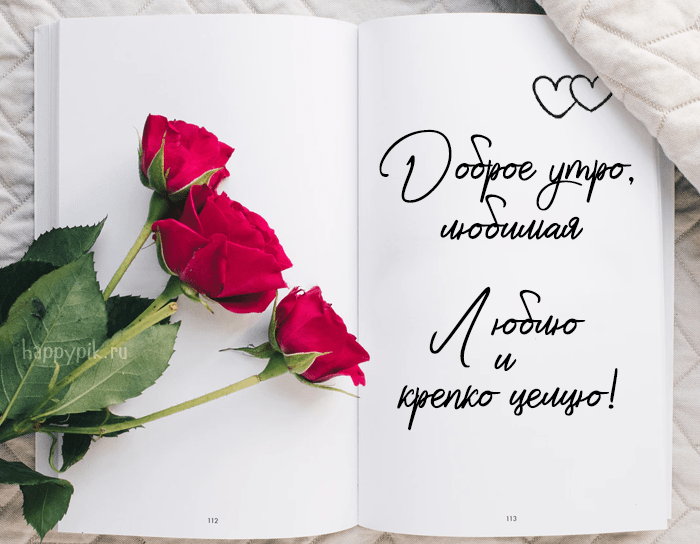 Доброе утро,
любимая
Люблю
и
крепко целую!
happypik.ru
112
113